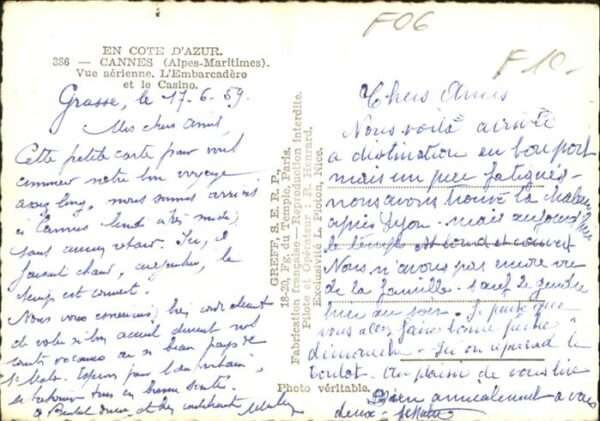 F06
F10-
EN COTE D'AZUR.
386 — CANNES (Alpes-Maritimes).
Vue aérienne. L'Embarcadère
et le Casino.
Grasse, le 17-6-59
Mes chers amis,
Cette petite carte pour vous
notre bon voyage
nous sommes arrivés
à Cannes lundi à midi
sans aucun retard. Ici, il
faisait chaud, aujourd'hui, le
temps est couvert.
Nous vous
et de votre si bon accueil durant nos
vacances au si beau pays de
St Malo. Espérons pour l'an prochain,
se retrouver tous en bonne santé.
à
GREFF, S. E. R. P.,
18-20, Fg. du Temple, Paris.
Fabrication française — Reproduction interdite.
Pilote et Opérateur : R. Henrard.
Exclusivité L. Pioton, Nice.
Photo véritable.
Chers Amis
Nous voilà arrivé
a distination en bon port
mais un peu fatigués -
nous avons trouvé la chaleur
après Lyon - mais aujourd'hui
le temps est lourd et couvert
Nous n'avons pas encore vu
de la famille - sauf le gendre
hier au soir - Je pense que
vous allez faire bonne pêche
dimanche -
boulot - Au plaisir de vous lire
Bien amicalement a vous
deux -